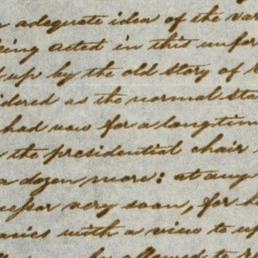 adequate idea of the var
being acted in this unfor
up by the old story of
idered as the normal sta
had now for a long time
the presidential chair
a dozen more: at any
very soon, for h
with a view to up